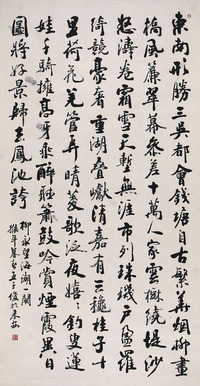 東南形勝三吳都會錢塘自古繁華烟柳畫
橋風簾翠幕參差十萬人家雲樹繞堤沙
怒濤卷霜雪天塹無涯市列珠璣戶盈羅
綺競豪奢重湖疊巘清嘉有三秋桂子十
里荷花羌管弄晴菱歌泛夜嬉嬉釣叟蓮
娃千騎擁高牙乘醉聽簫鼓吟賞煙霞異日
圖將好景歸去鳳池誇
柳永望海潮一闋